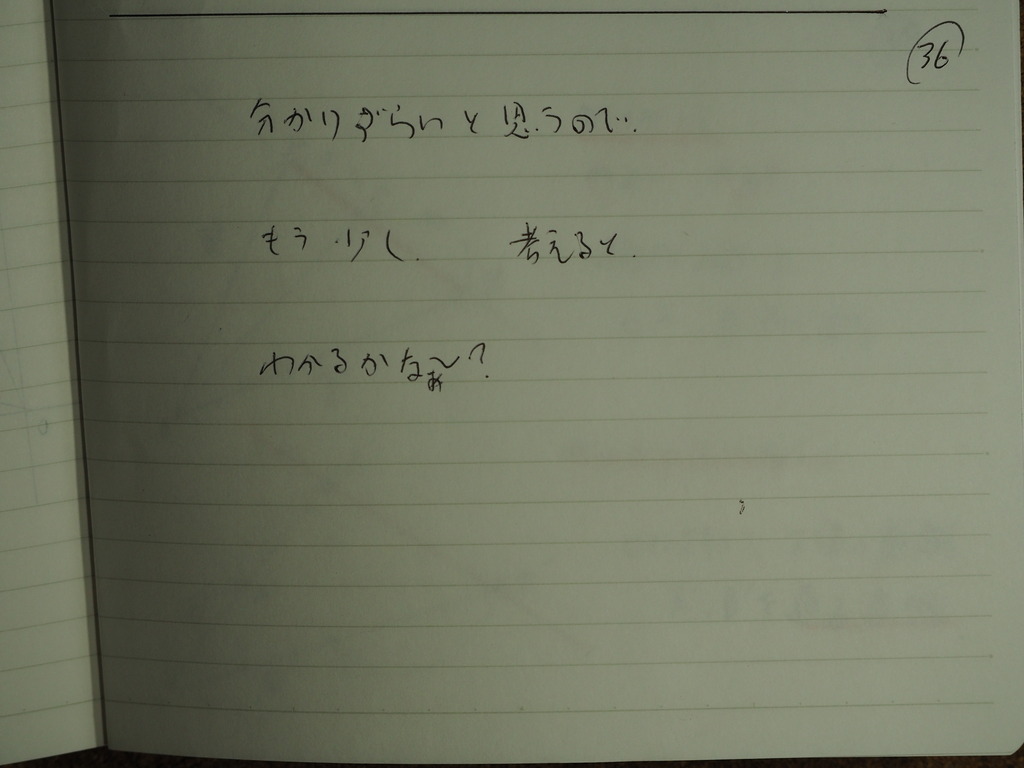 36
分かりずらいと思うので.
もう少し. 考えると.
わかるかなぁ〜?